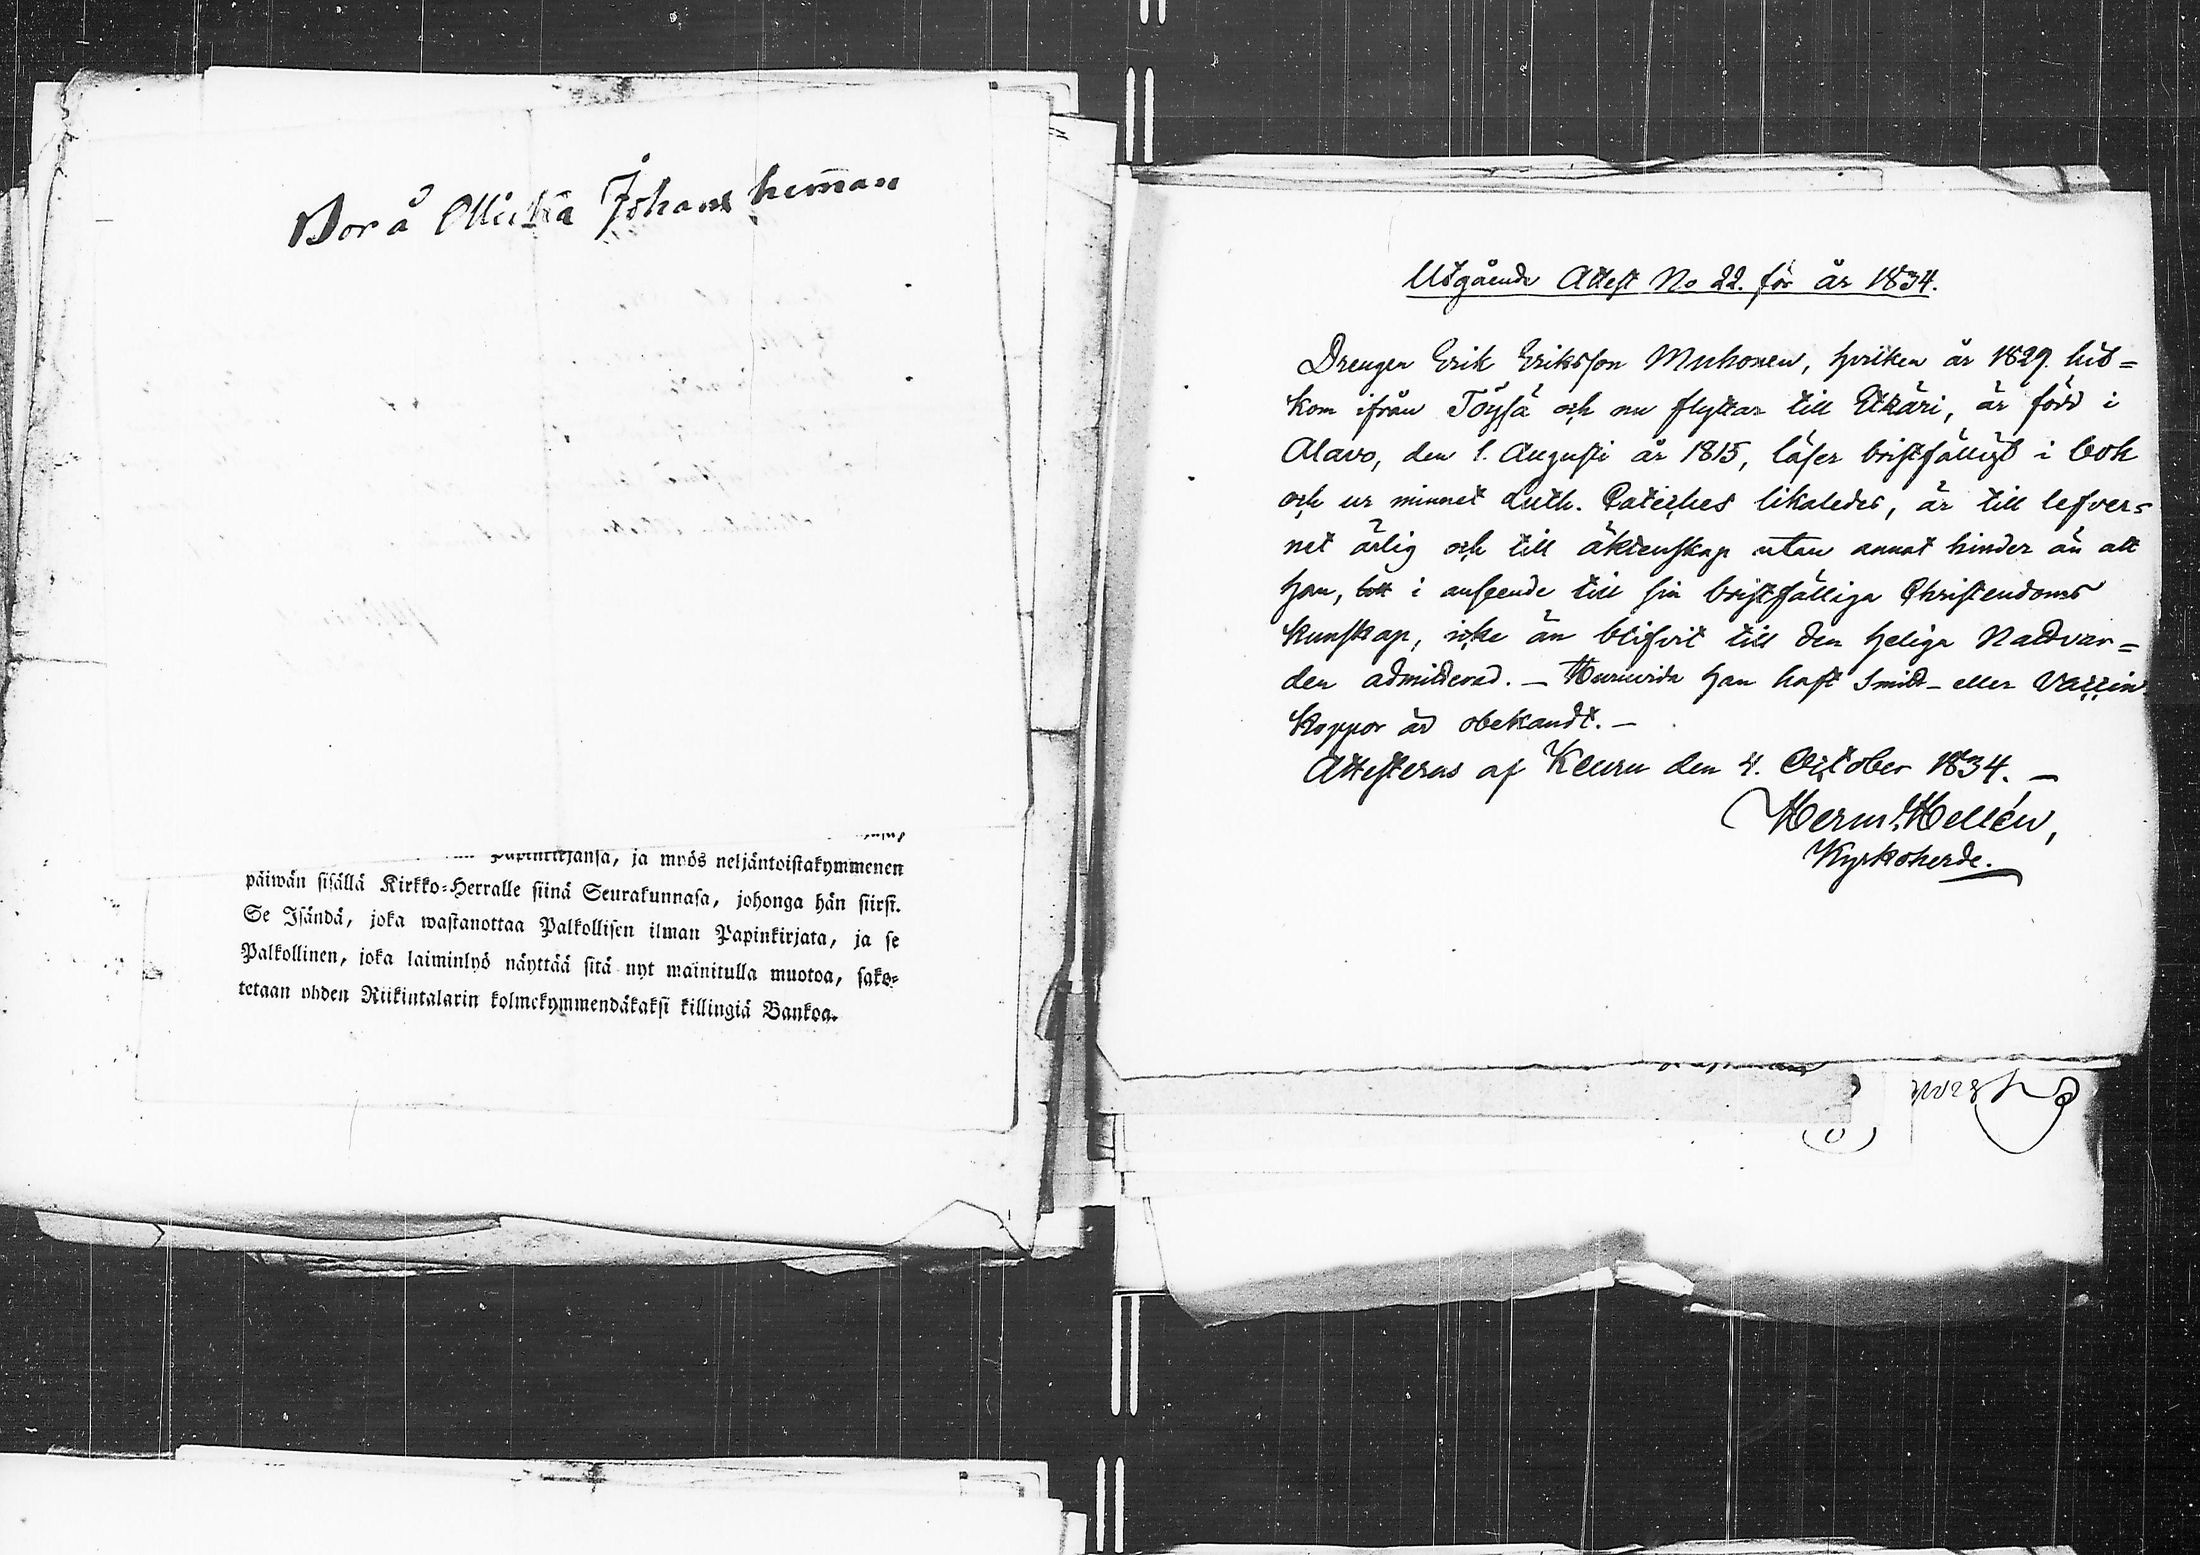 Bor å Ollicka Johans hem̄an
Papinkirjansa, ja myös neljäntoistakymmenen
päiwän sisällä Kirkko-Herralle siinä Seurakunnasa, johonga hän siirsi.
Se Isändä, joka wastanottaa Palkollisen ilman Papinkirjata, ja se
Palkollinen, joka laiminlyö näyttää sitä nyt mainitulla muotoa, sako-
tetaan yhden Riikintalarin kolmekymmendäkaksi killingiä Bankoa.
Utgående Attest No 22. för år 1834.
Drengen Erik Eriksson Muhonen, hvilken år 1829. hit=
kom ifrån Töysä och nu flyttar till Etzäri, är född i
Alavo, den 1. Augusti år 1815, läser bristfälligt i bok
och ur minnet Luth. Cateches likaledes, är till lefver=
net ärlig och till äktenskap utan annat hinder än att
han, i anseende till sin bristfälliga Christendoms
kunskap, icke än blifvit till den heliga Nattvar=
den admitterad. — Huruvida han haft Smitt- eller Vaccin
koppor är obekandt. —
Attesteras af Keuru den 4. October 1834. —
Herm. Hellén,
Kyrkoherde.